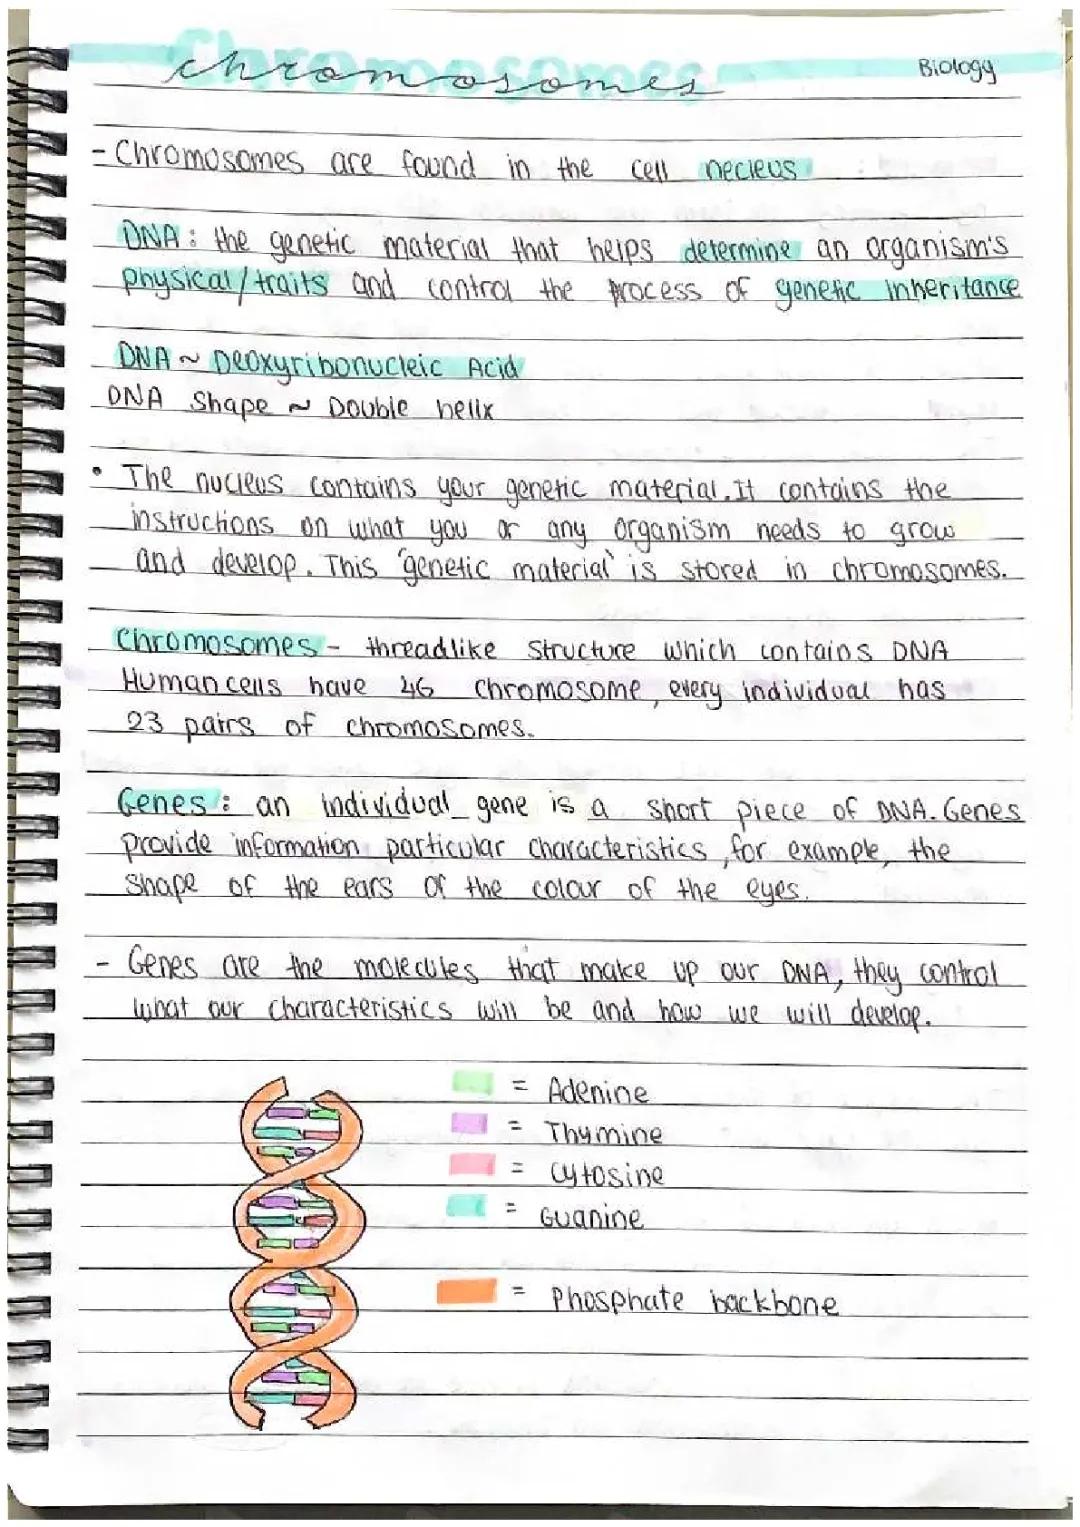 Chromosomes
chromosomes
Biology
- Chromosomes are found in the cell necleus
DNA : the genetic material that helps determine an organism's
physical/traits and control the process of genetic inheritance
DNA ~ Deoxyribonucleic Acid
DNA Shape ~ Double helix
• The nucleus contains your genetic material. It contains the
instructions on what you or any organism needs to grow
and develop. This 'genetic material' is stored in chromosomes.
Chromosomes - threadlike structure which contains DNA
Human cells have 46 chromosome, every individual has
23 pairs of chromosomes.
Genes : an individual gene is a short piece of DNA. Genes
provide information particular characteristics, for example, the
shape of the ears or the colour of the eyes.
- Genes are the molecules that make up our DNA, they control
what our characteristics will be and how we will develop.
= Adenine
= Thymine
= Cytosine
= Guanine
= Phosphate backbone